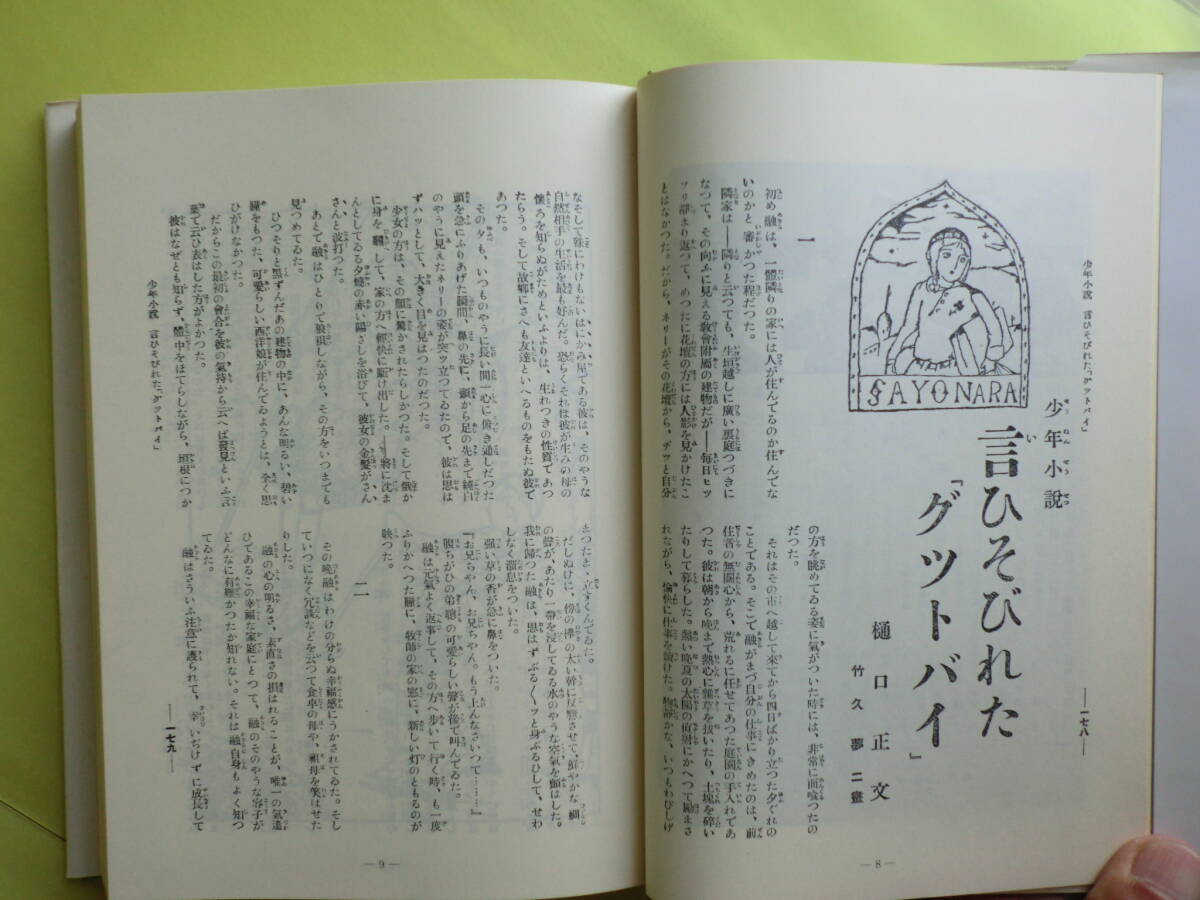 少年小說　言ひそびれた「グツトバイ」
SAYONARA
少年小說
言ひそびれた
「グツトバイ」
樋口正文
竹久夢二畫
一
初め融は、一體隣りの家には人が住んでるのか住んでな
いのかと審かつた程だつた。
隣家は――隣りと云つても、生垣越しに廣い裏庭つづきに
なつて、その向ふに見える敎會附屬の建物だが――每日ヒッ
ソリ靜まり返つて、めつたに花壇の方には人影を見かけたこ
とはなかつた。だから、ネリーがその花壇から、ヂッと自分
の方を眺めてゐる姿に氣がついた時には、非常に面喰つたの
だつた。
それはその市へ越して來てから四日ばかり立つた夕ぐれの
ことである。そこで融がまづ自分の仕事にきめたのは、前
住者の無關心から、荒れるに任せてあつた庭園の手入れであ
つた。彼は朝から晩まで熱心に雜草を拔いたり、土塊を碎い
たりして暮らした。熱い晩夏の太陽の直射にかへつて勵まさ
れながら、愉快に仕事を續けた。物靜かな、いつもわびしげ
―一七八―
―8―
なそして妹にわけもないはにかみ屋である彼は、そのやうな
自然相手の生活を最も好んだ。恐らくそれは彼が生みの母の
懷ろを知らぬがためといふよりは、生れつきの性質であつ
たらう。そして故鄕にさへも友達といへるものをもたぬ彼で
あつた。
その夕も、いつものやうに長い間一心に俯き通しだつた
頭を急にふりあげた瞬間、鼻の先に、頭から足の先まで純白
のやうに見えたネリーの姿が突つ立つてゐたので、彼は思は
ずハッとして、大きく目を見はつたのだつた。
少女の方は、その顏に驚かされたらしかつた。そして俄か
に身を飜して、家の方へ輕快に駈け出した。――將に沈ま
んとしてゐる夕燒の赤い陽ざしを浴びて、彼女の金髮がさん
さんと波打つた。
あとで融はひとりで狼狽しながら、その方をいつまでも
見つめてゐた。
ひつそりと黑ずんだあの建物の中に、あんな明るい、碧い
瞳をもつた、可愛らしい西洋娘が住んでゐようとは、全く思
ひがけなかつた。
だからこの最初の會合を彼の氣持から云へば發見といふ言
葉で云ひ表はした方がよかつた。
彼はなぜとも知らず、體中をほてらしながら、垣根につか
まつたま、立すくんでゐた。
だしぬけに、傍の欅の太い幹に反響させて、鮮やかな蜩
の聲が、あたり一帶を浸してゐる水のやうな空氣を顫はした。
我に歸つた融は、思はずぶる〱ッと身ぶるひして、せわ
しなく溜息をついた。
强い草の香が急に鼻をついた。
『お兄ちやん、お兄ちやん。もう上んなさいつて………』
腹ちがひの弟聰の可愛らしい聲が後で叫んでゐた。
融は元氣よく返事して、その方へ步いて行く時、も一度
ふりかへつた瞳に、牧師の家の窓に、新しい灯のともるのが
映つた。
二
その晩融はわけの分らぬ幸福感にうかされてゐた。そし
ていつになく冗談などを云つて食卓の母や、祖母を笑はせた
りした。
融の心の明るさ、素直さの損はれることが、唯一の氣遣
ひであるこの幸福な家庭にとつて、融のそのやうな容子が
どんなに有難かつたか知れない。それは融自身もよく知つ
てゐた。
融はさういふ注意に護られて、幸ひいぢけずに成長して
少年小說　言ひそびれた「グツトバイ」
―一七九―
―9―